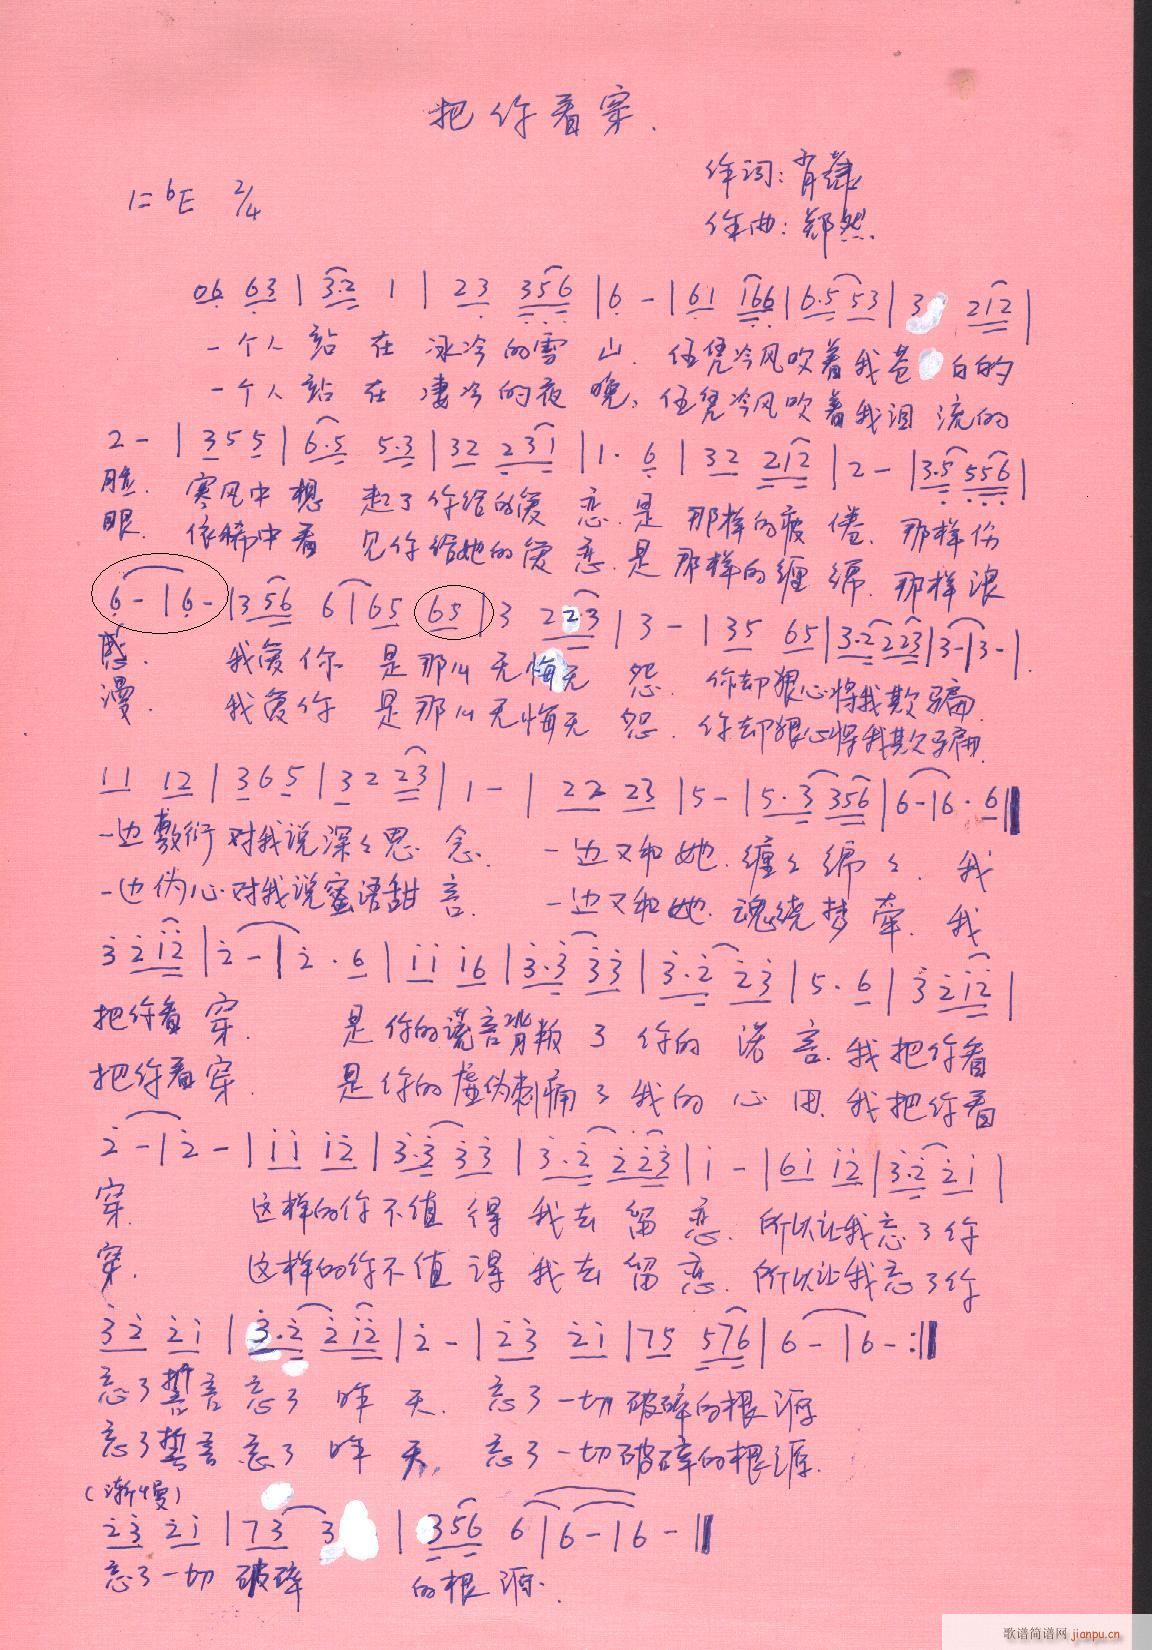 把你看穿.
1=bE 2/4
作词:肖
作曲:郑然
06 63 | 3·2 1 | 23 356 | 6 - | 61 166 | 6·5 53 | 3 212 |
一个人站在冰冷的雪山. 任凭冷风吹着我苍白的
一个人站在凄冷的夜晚, 任凭冷风吹着我泪流的
2 - | 3 5 5 | 6·5 5·3 | 32 231 | 1· 6 | 32 212 | 2 - | 3·5 556 |
脸. 寒风中想起了你给的爱恋.是那样的疲倦. 那样伤
眼. 依稀中看见你给她的爱恋.是那样的缠绵. 那样浪
6 - | 6 - | 3 56 6 | 65 65 | 3 22·3 | 3 - | 35 65 | 3·2 223 | 3 - | 3 - |
感. 我爱你是那么无悔无怨. 你却狠心将我欺骗.
漫. 我爱你是那么无悔无怨. 你却狠心将我欺骗.
11 12 | 3 6 5 | 3 2 23 | 1 - | 22 23 | 5 - | 5·3 356 | 6 - | 6 · 6 ‖
一边敷衍对我说深々思念. 一边又和她.缠々绵々. 我
一边伪心对我说蜜语甜言. 一边又和她.魂绕梦牵. 我
3 2 12 | 2 - | 2 · 6 | 11 16 | 3·3 33 | 3·2 23 | 5· 6 | 3 2 12 |
把你看穿. 是你的谎言背叛了你的诺言.我把你看
把你看穿. 是你的虚伪刺痛了我的心田.我把你看
2 - | 2 - | 11 12 | 3·3 33 | 3·2 223 | 1 - | 61 12 | 3·2 21 |
穿. 这样的你不值得我去留恋. 所以让我忘了你
穿. 这样的你不值得我去留恋. 所以让我忘了你
32 21 | 3·2 212 | 2 - | 23 21 | 75 576 | 6 - | 6 - :‖
忘了誓言忘了昨天. 忘了一切破碎的根源
忘了誓言忘了昨天. 忘了一切破碎的根源.
(渐慢)
23 21 | 73 3 | 356 6 | 6 - | 6 - ‖
忘了一切破碎的根源.
歌谱简谱网 jianpu.cn